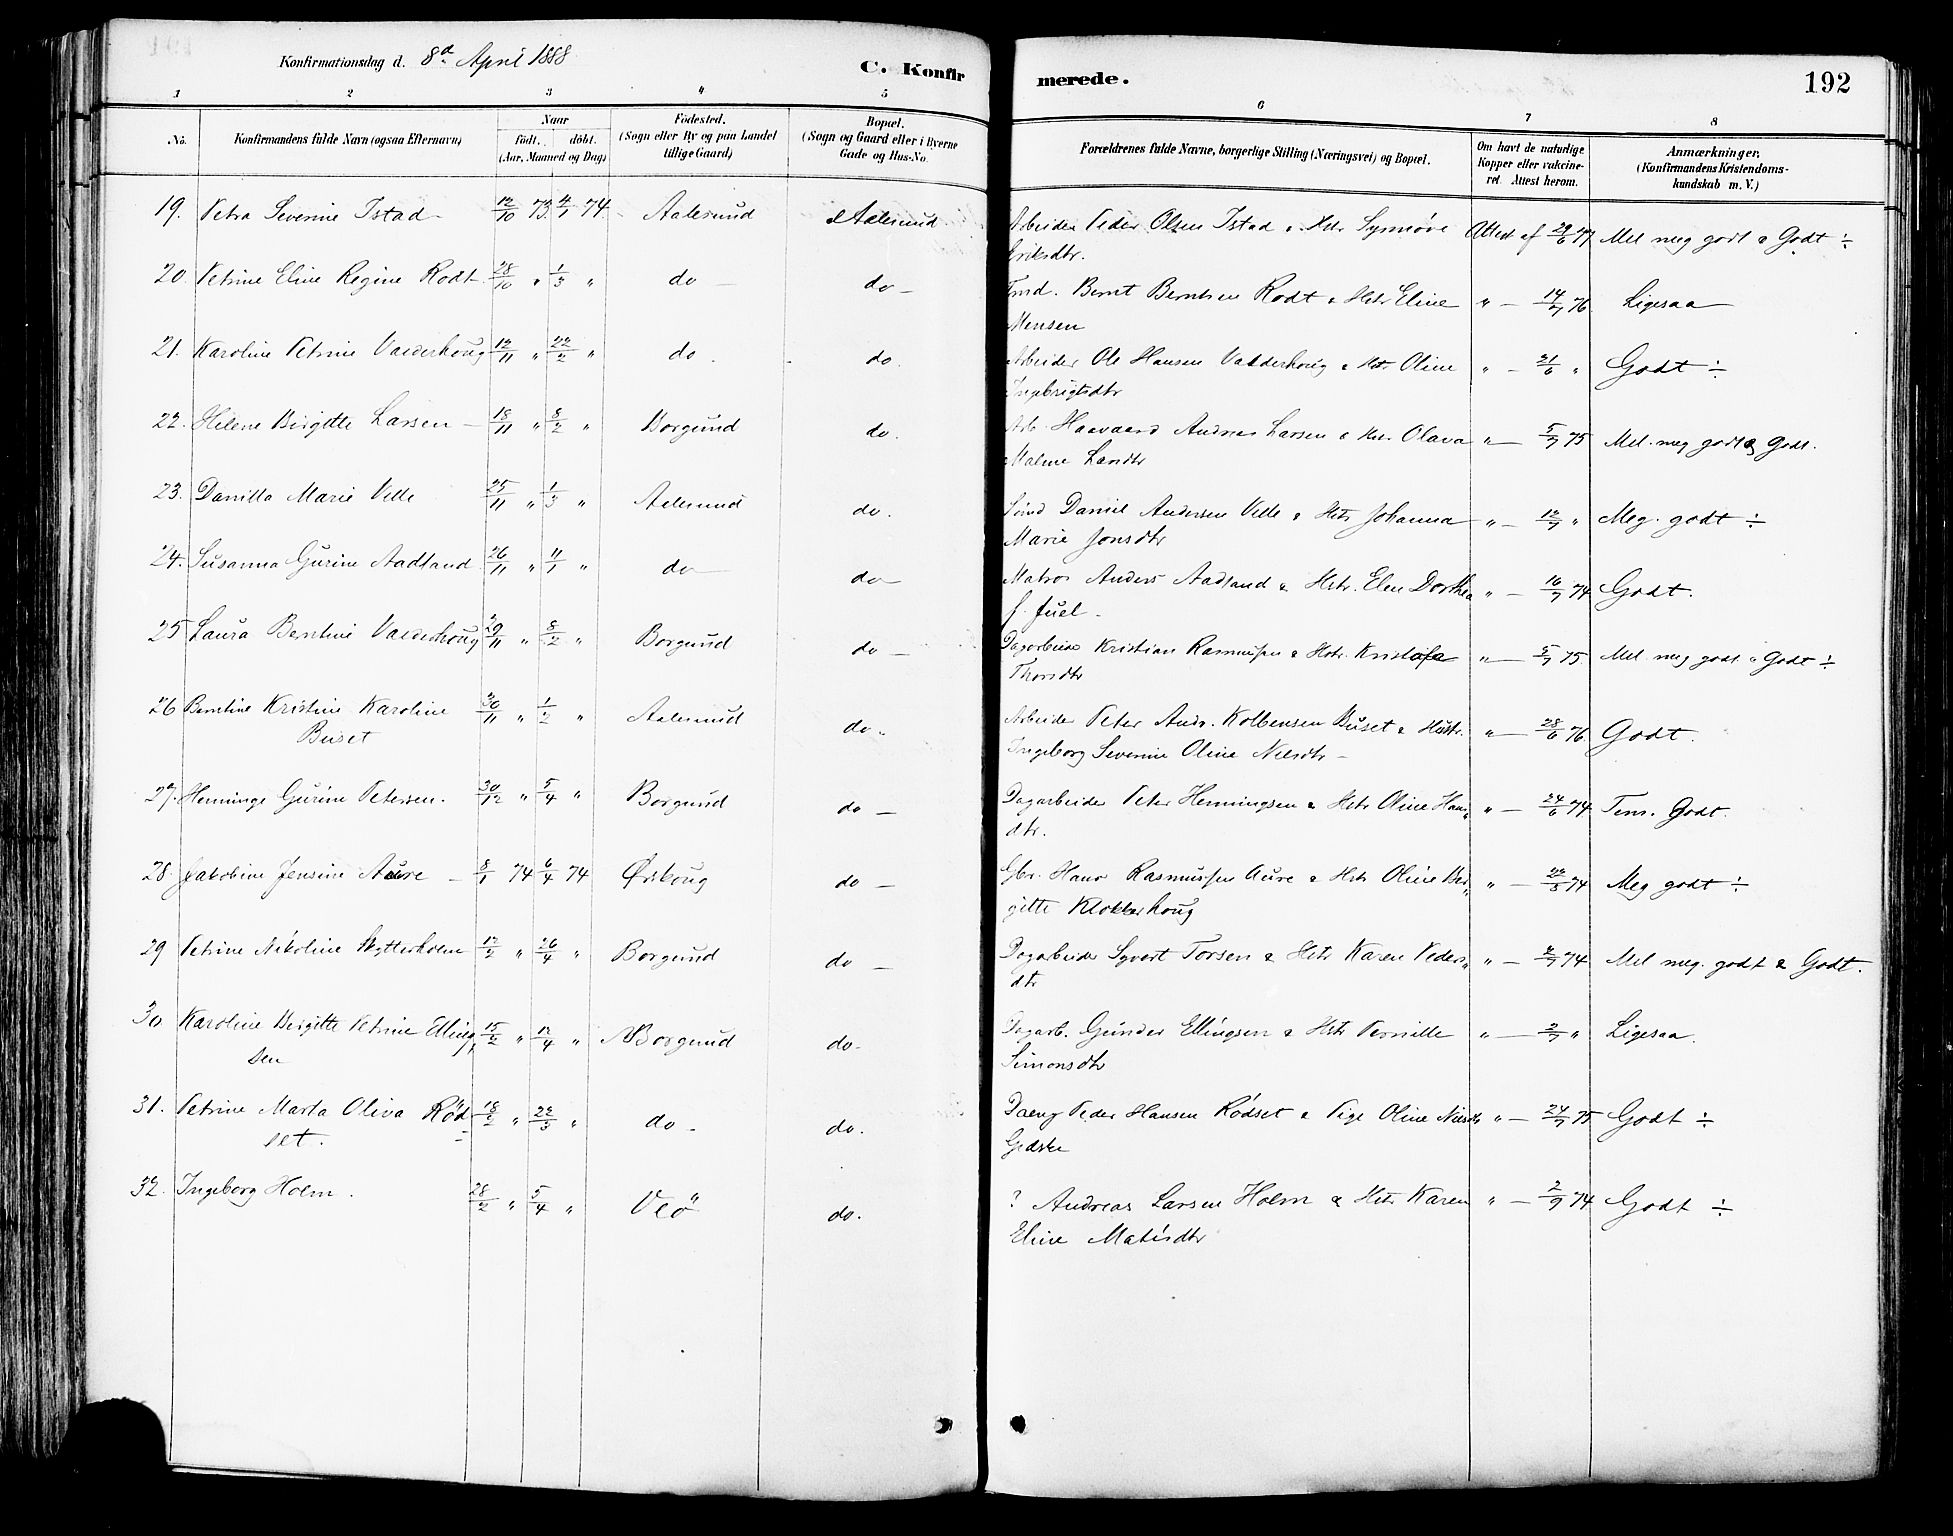 Konfirmationsdag d. 8d April 1888
C. Konfirmerede.
192
1 2 3 4 5 6 7 8
No.
Konfirmandens fulde Navn (ogsaa Efternavn)
Naar
födt. döbt.
(Aar, Maaned og Dag)
Födested.
(Sogn eller By og paa Landet
tillige Gaard)
Bopæl.
(Sogn og Gaard eller i Byerne
Gade og Hus-No.
Forældrenes fulde Navne, borgerlige Stilling (Næringsvei) og Bopæl.
Om havt de naturlige
Kopper eller vakcine-
ret. Attest herom.
Anmærkninger,
(Konfirmandens Kristendoms-
kundskab m. V.)
19. Petra Severine Istad 12/10 73 4/1 74 Aalesund Aalesund Arbeider Peder Olsen Istad & Hstr. Synnøve Attest af 29/6 77 Mel meg godt & Godt ÷
Eriksdtr.
20. Petrine Eline Regine Rodt 28/10 " 1/3 " do do Bernt Berntsen Rodt & Hstr Eline " 14/7 76 Ligesaa
Mensen
21. Karoline Petrine Valderhoug 12/11 " 22/2 " do do. Arbeider Ole Hansen Valderhoug & Hstr. Oline " 21/6 " Godt ÷
Ingebrigtsdtr
22. Helene Birgitte Larsen 18/11 " 8/2 " Borgund do. Arb. Haavaard Andreas Larsen & Hstr. Olava " 5/7 75 Mel. meg godt og Godt.
Malene
23. Danilla Marie Velle 25/11 " 1/3 " Aalesund do. Daniel Andersen Velle & Hstr Johanna " 12/7 " Meg. godt ÷
Marie Jonsdtr
24. Susanna Gurine Aadland 26/11 " 4/1 " do do Matros Anders Aadland & Hstr. Elen Dorthea " 16/7 74 Godt.
f. Juel
25 Laura Bentine Valderhoug 29/11 " 8/2 " Borgund do Dagarbeider Kristian Rasmussen & Hstr. Kristofa " 5/7 75 Mel. meg godt & Godt ÷
Thorsdtr
26 Berntine Kristine Karoline 30/11 " 1/2 " Aalesund do. Arbeider Peter Andr. Kolbensen Buset & Hustr. " 28/6 76 Godt.
Buset Ingeborg Severine Oline Nilsdtr
27. Henninge Gurine Petersen. 30/12 " 5/4 " Borgund do Dagarbeider Peter Henningsen & Hstr Oline Hans " 24/6 74 Tem. Godt.
dtr.
28. Jakobine Jensine Aure 8/1 74 6/4 74 Ørskoug do Gbr. Hans Rasmussen Aure & Hstr Oline Bir " 22/8 74 Meg godt ÷
gitte Klokkerhoug
29 Petrine Nikoline Skytterholm 12/2 " 26/4 " Borgund do Dagarbeider Syvert Torsen & Hstr Karen Peders " 2/7 74 Mel meg. godt & Godt.
dtr
30 Karoline Birgitte Petrine Elling 15/2 " 12/4 " Borgund do Dagarb. Gunder Ellingsen & Hstr Pernille " 2/7 " Ligesaa.
sen Simonsdtr
31. Petrine Marta Oliva Rød 18/2 " 22/3 " do do. Peder Hansen Rødset & Pige Oline Nilsdtr " 24/7 75 Godt ÷
set. Gjedske
32. Ingeborg Holm. 28/2 " 5/4 " Veö do. ? Andreas Larsen Holm & Hstr Karen " 2/9 74 Godt ÷
Eline Matisdtr